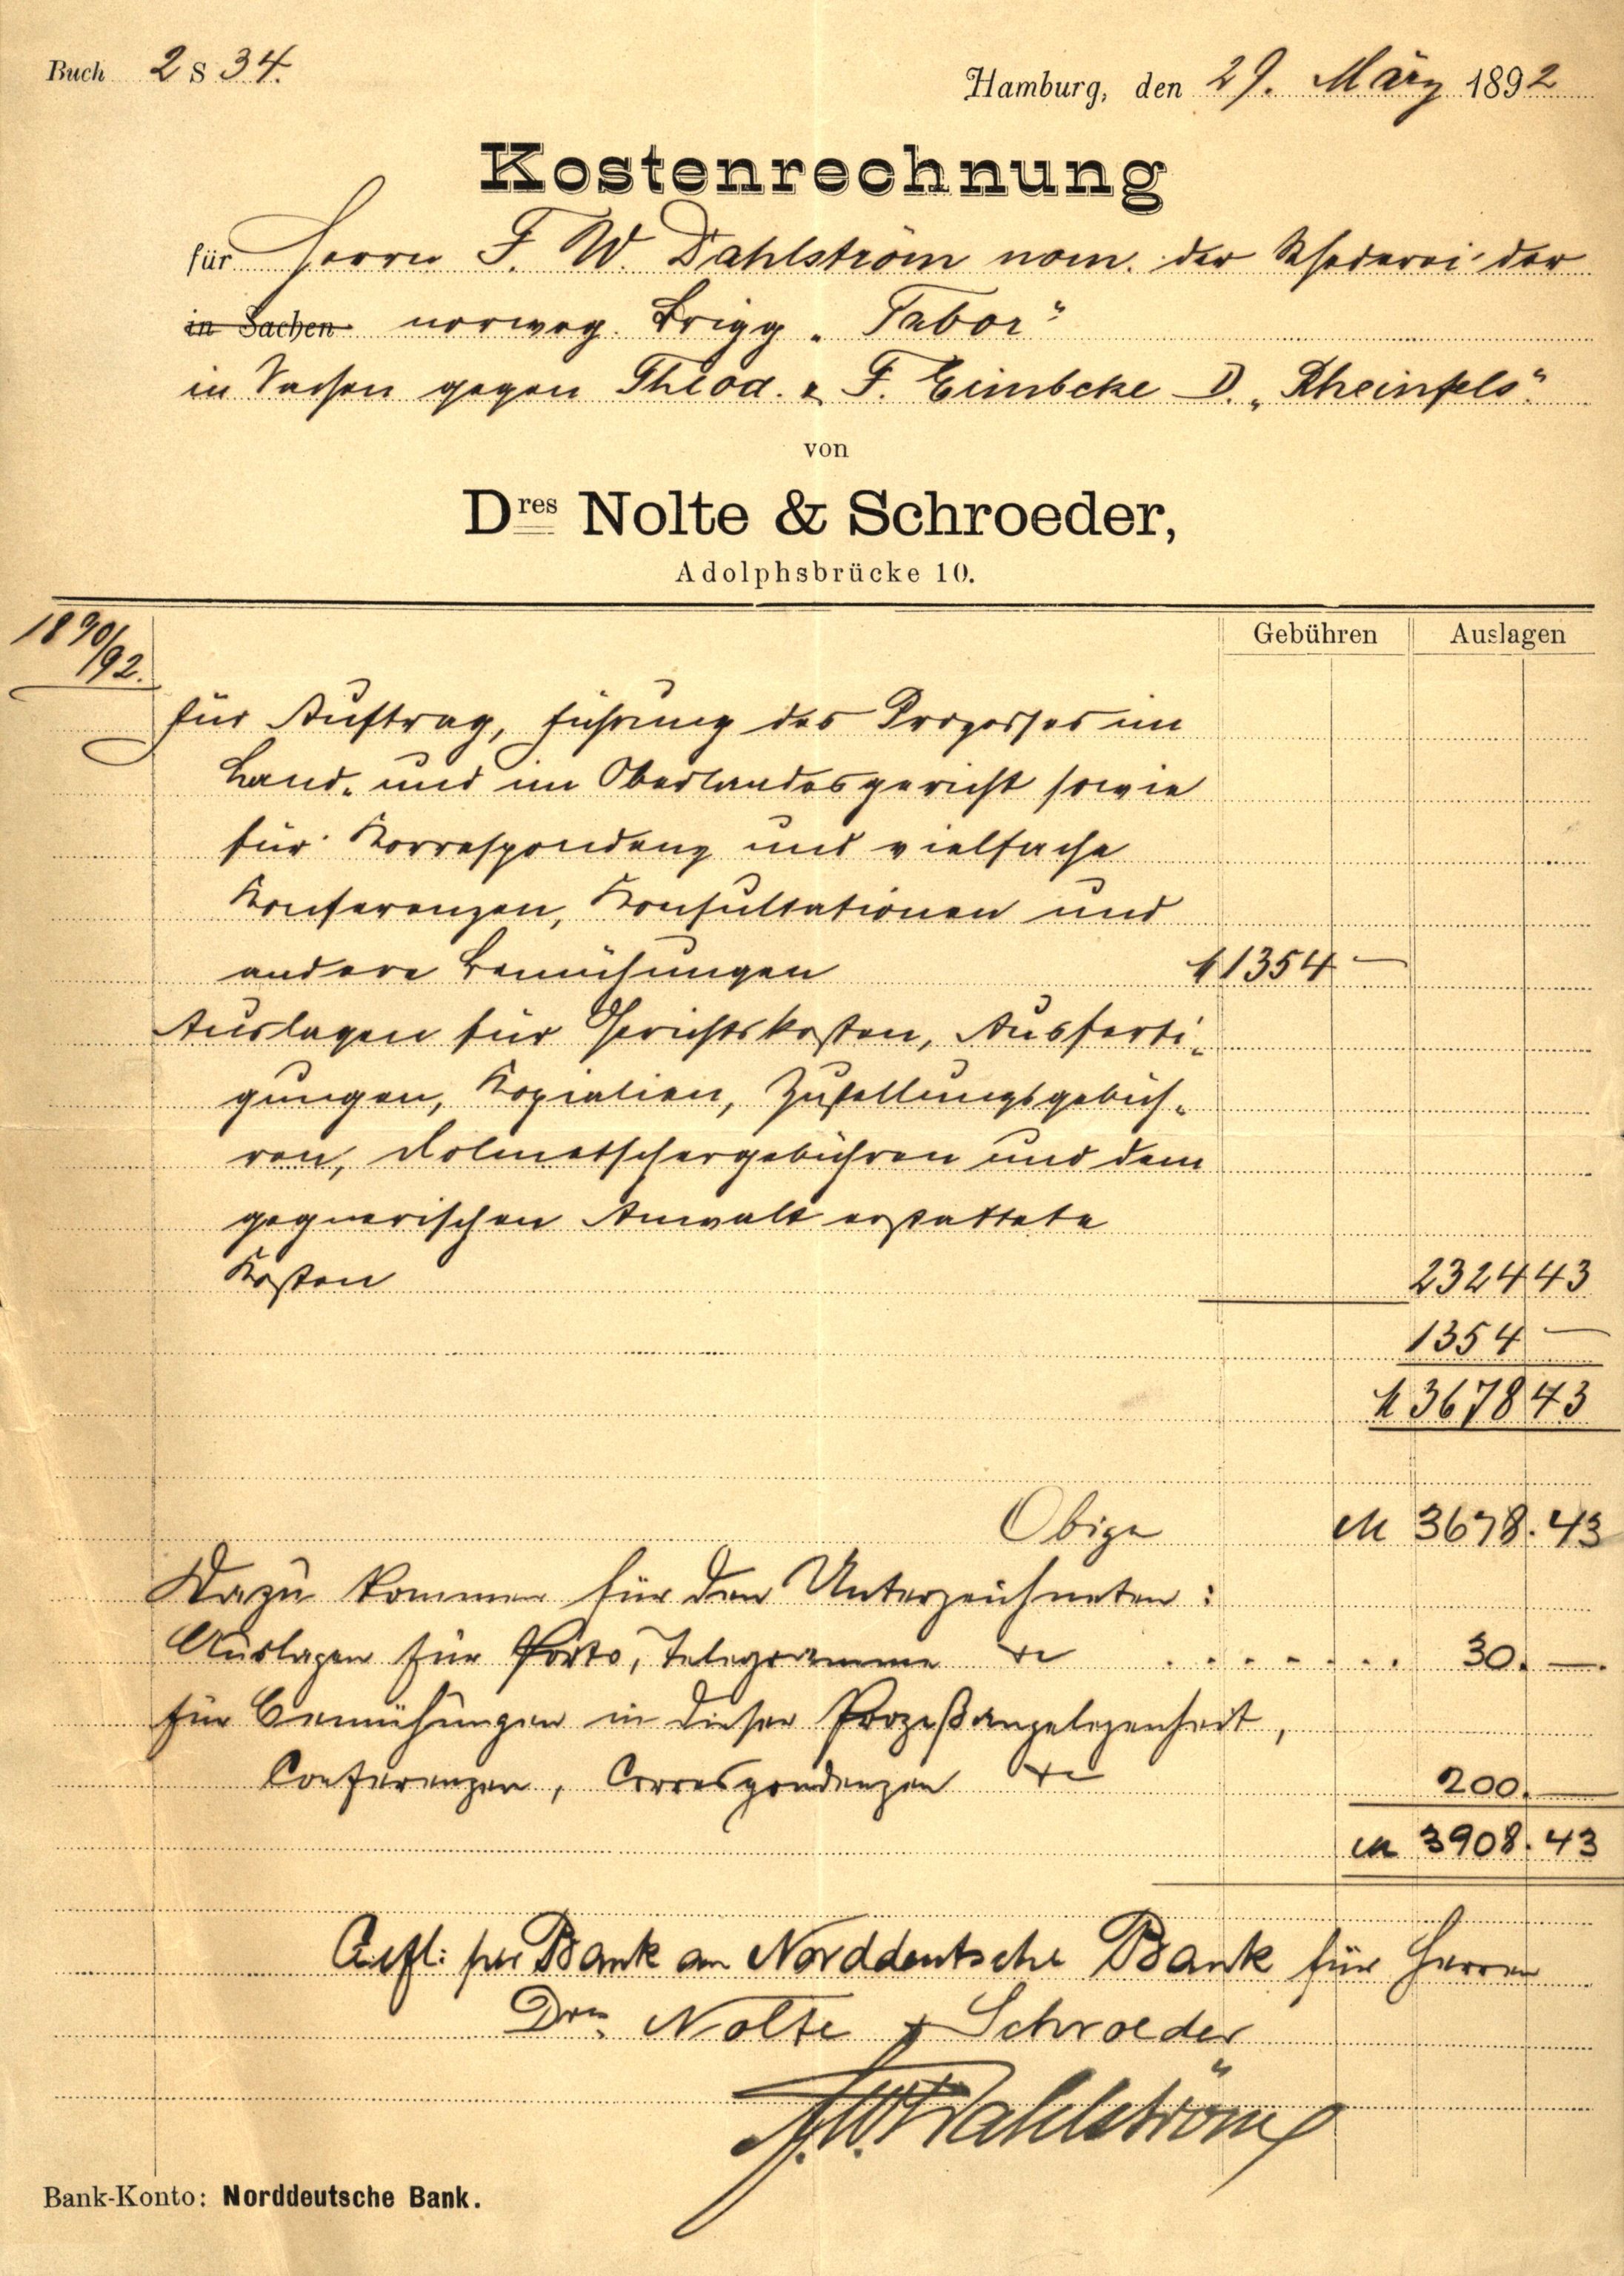 Buch 2 S 34.
Hamburg, den 29. März 1892
Kostenrechnung
für Herrn F. W. Dahlström nom. der Rhederei der
in Sachen norweg. Brigg „Tabor“
in Sachen gegen Theod. & F. Eimbcke D. „Rheinfels“
von
Dres Nolte & Schroeder,
Adolphsbrücke 10.
1890/92.
Gebühren Auslagen
für Auftrag, Führung des Prozesses im
Land- und im Oberlandesgericht sowie
für Korrespondenz und vielfache
Konferenzen, Konsultationen und
andere Bemühungen M 1354 —
Auslagen für Gerichtskosten, Ausferti-
gungen, Kopialien, Zustellungsgebüh-
ren, Dolmetschergebühren und dem
gegnerischen Anwalt erstattete
Kosten 2324 43
1354 —
M 3678 43
Obige M 3678.43
Dazu kommen für den Unterzeichneten:
Auslagen für Porto, Telegramme etc ....... 30.—.
für Bemühungen in dieser Prozeßangelegenheit,
Conferenzen, Correspondenzen etc 200.—
M 3908.43
per Bank an Norddeutsche Bank für Herren
Dres Nolte & Schroeder
F.W. Dahlström
Bank-Konto: Norddeutsche Bank.